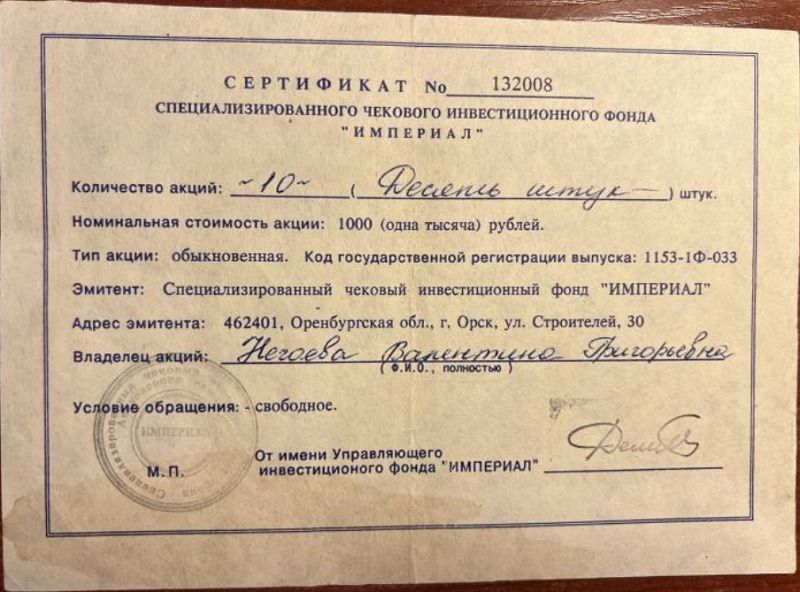 СЕРТИФИКАТ No 132008
СПЕЦИАЛИЗИРОВАННОГО ЧЕКОВОГО ИНВЕСТИЦИОННОГО ФОНДА
"ИМПЕРИАЛ"
Количество акций: ~10~ ( Десять штук ) штук.
Номинальная стоимость акции: 1000 (одна тысяча) рублей.
Тип акции: обыкновенная. Код государственной регистрации выпуска: 1153-1Ф-033
Эмитент: Специализированный чековый инвестиционный фонд "ИМПЕРИАЛ"
Адрес эмитента: 462401, Оренбургская обл., г, Орск, ул. Строителей, 30
Владелец акций: Валентина Григорьевна
(Ф.И.О., полностью)
Условие обращения: - свободное.
ИМПЕРИАЛ
М.П.
От имени Управляющего
инвестиционного фонда "ИМПЕРИАЛ"